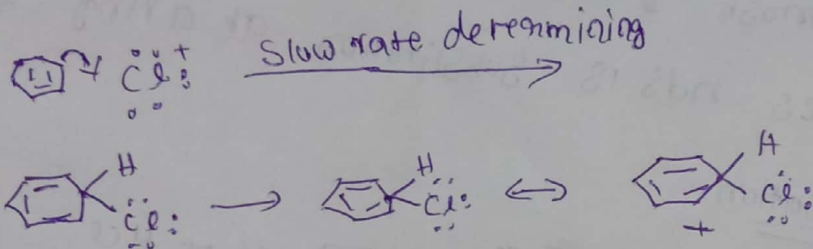 + Cl: + Slow rate derenmining
H H H
Cl: → Cl: ↔ Cl:
+